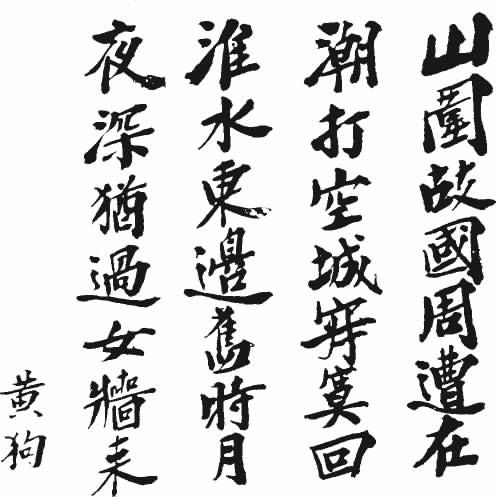 山圍故國周遭在
潮打空城寂寞回
淮水東邊舊時月
夜深猶過女牆来
黄狗